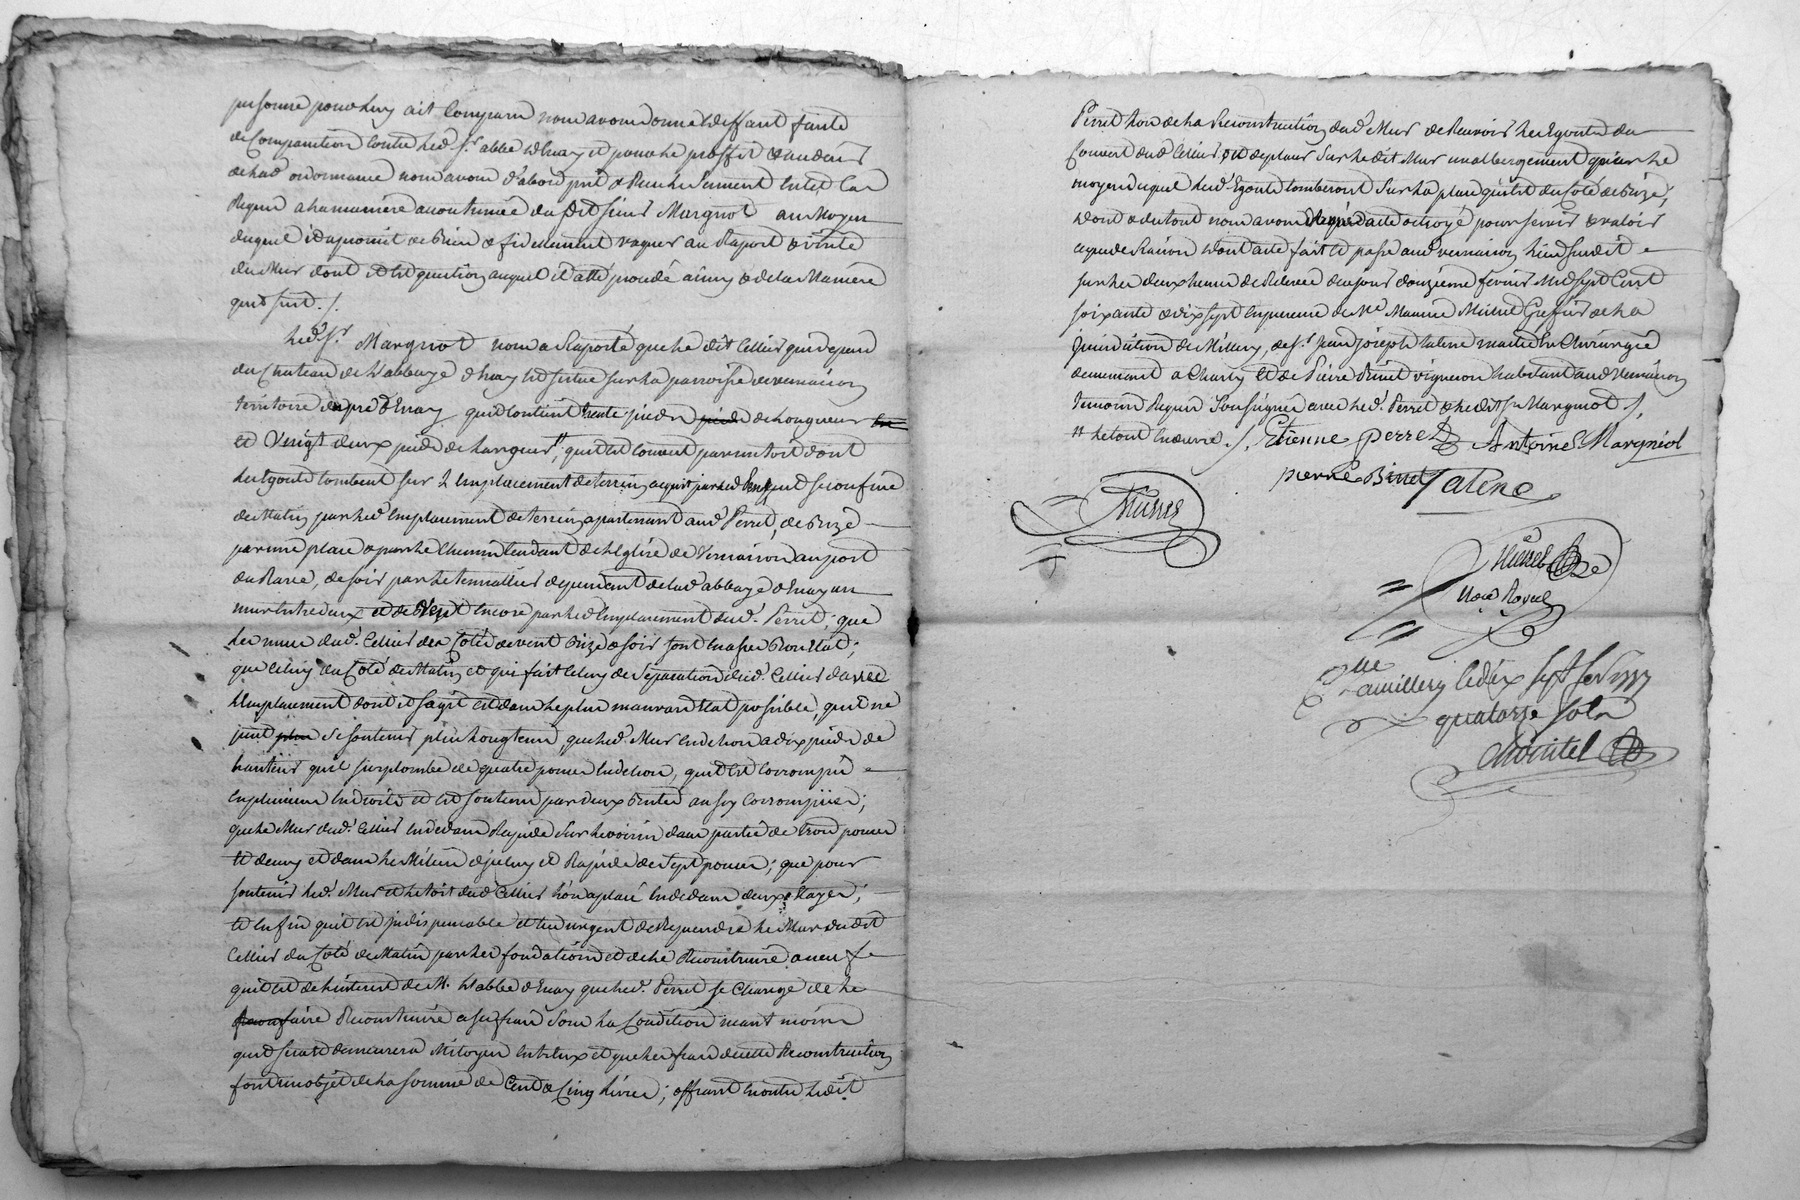 personne pour luy ait Comparu nous avons donné deffaut faute
de Comparution Contre led. Sr. abbé d'Enay et pour le proffit
de lad. ordonnance nous avons d'abord pris & Reçu le Serment
Requis a la maniere accoutumée du dit sieur Margniol au Moyen
duquel il a promit de Bien & fidellement vaquer au Raport & visite
du Mur dont il est question, auquel il a été procédé ainsy & de la Maniere
qui suit ./.
Led. Sr. Margniol nous a Raporté que le dit Cellier qui dépend
du Chateau de L'abbaye d'Enay est situé sur la parroisse de vernaison
territoire du pré d'Enay qu'il Contient trente pieds pieds de Longueur
et Vingt deux pieds de Largeur, qu'il est Couvert par un toit dont
les Egouts tombent sur L'Emplacement de terrein acquit par led. Perret se confine
de Matin par led. Emplacement de terrein apartenant aud. Perret, de Bize
par une place & par le Chemin tendant de L'Eglise de Vernaison au port
de soir par le tenallier dépendant de lad. abbaye d'Enay un
mur entre deux et de Vent encore par led. Emplacement dud. Perret; que
les murs dud. Cellier des Cotés de vent Bize & soir sont en assés Bon Etat;
que celuy du Coté de Matin et qui fait celuy de Séparation dud. Cellier d'avec
L'Emplacement dont il s'agit est dans le plus mauvais Etat possible, qu'il ne
peut plus se soutenir plus Longtems, que led. Mur a dix pieds de
hauteur qu'il surplombe de quatre pouces, qu'il est Corrompu
en plusieurs Endroits et est soutenu par deux Butes aussy Corrompües;
que le Mur dud. Cellier en dedans sur dans partie de trois pouces
et demy et dans le Milieu d'jceluy de sept pouces; que pour
soutenir led. Mur et le toit dud. Cellier L'on a placé en dedans deux Etayes;
et Enfin qu'il est jndispensable et tres urgent de Reprendre le Mur dudit
Cellier du Coté de Matin par les fondations et de le Reconstruire a neuf
qu'il est de L'interest de M. L'abbé d'Enay que led. Perret se Charge de le
faire Reconstruire a ses frais sous la Condition neant moins
qu'il sera & demeurera Mitoyen Entr'eux et que les frais de cette Reconstruction
font un objet de la somme de Cent & Cinq Livres; offrant en outre ledit
Perret Lors de la Reconstruction dud. Mur de Recevoir les Egouts du
Couvert dud. Cellier et de placer sur le dit Mur un albergement par le
moyen duquel lesd. Egouts tomberont sur la place qui est du Coté de Bize,
dont & du tout nous avons acte octroyé pour servir & valoir
ce que de Raison dont acte fait et passé aud. vernaison Lieu susdit
sur les deux heures de Relevée ce jour douzieme fevrier Mil sept Cent
soixante & dix sept en presence de Me. Maurice Greffier de la
Jurisdiction de Millery, de Sr. jean joseph Talene maitre en Chirurgie
demeurant a Charly et de Pierre Binet vigneron habitant aud. Vernaison
temoins Requis Soussignés avec led. Perret & le dit sr. Margniol ./.
Etienne perret Antoine Margniol
pierre Binet Talene
Nore Royal
Clle a millery le dix sept fev. 1777
quatorze sols